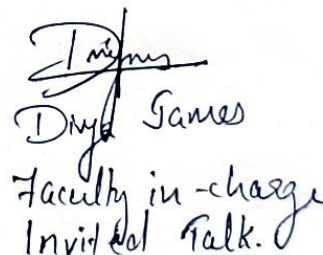 Divya James
Faculty in-charge
Invited Talk.